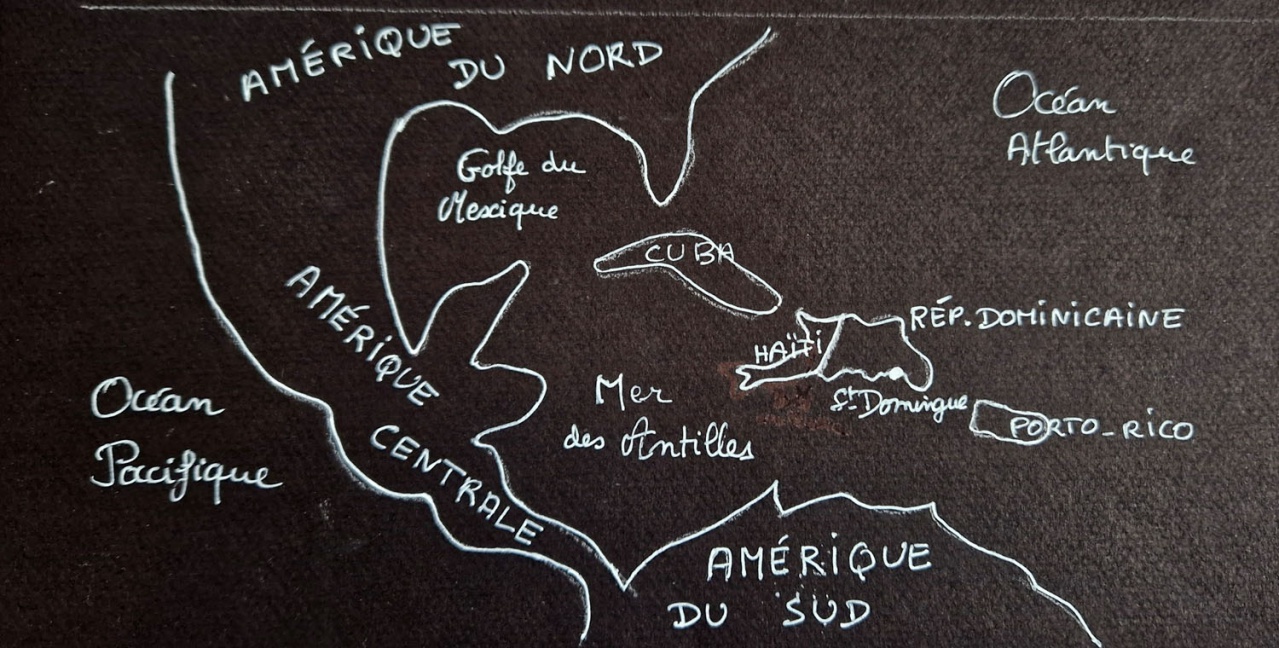 AMÉRIQUE
DU NORD
Océan
Atlantique
Golfe du
Mexique
CUBA
AMÉRIQUE
CENTRALE
RÉP. DOMINICAINE
HAÏTI
Océan
Pacifique
Mer
des Antilles
St Domingue
PORTO-RICO
AMÉRIQUE
DU SUD